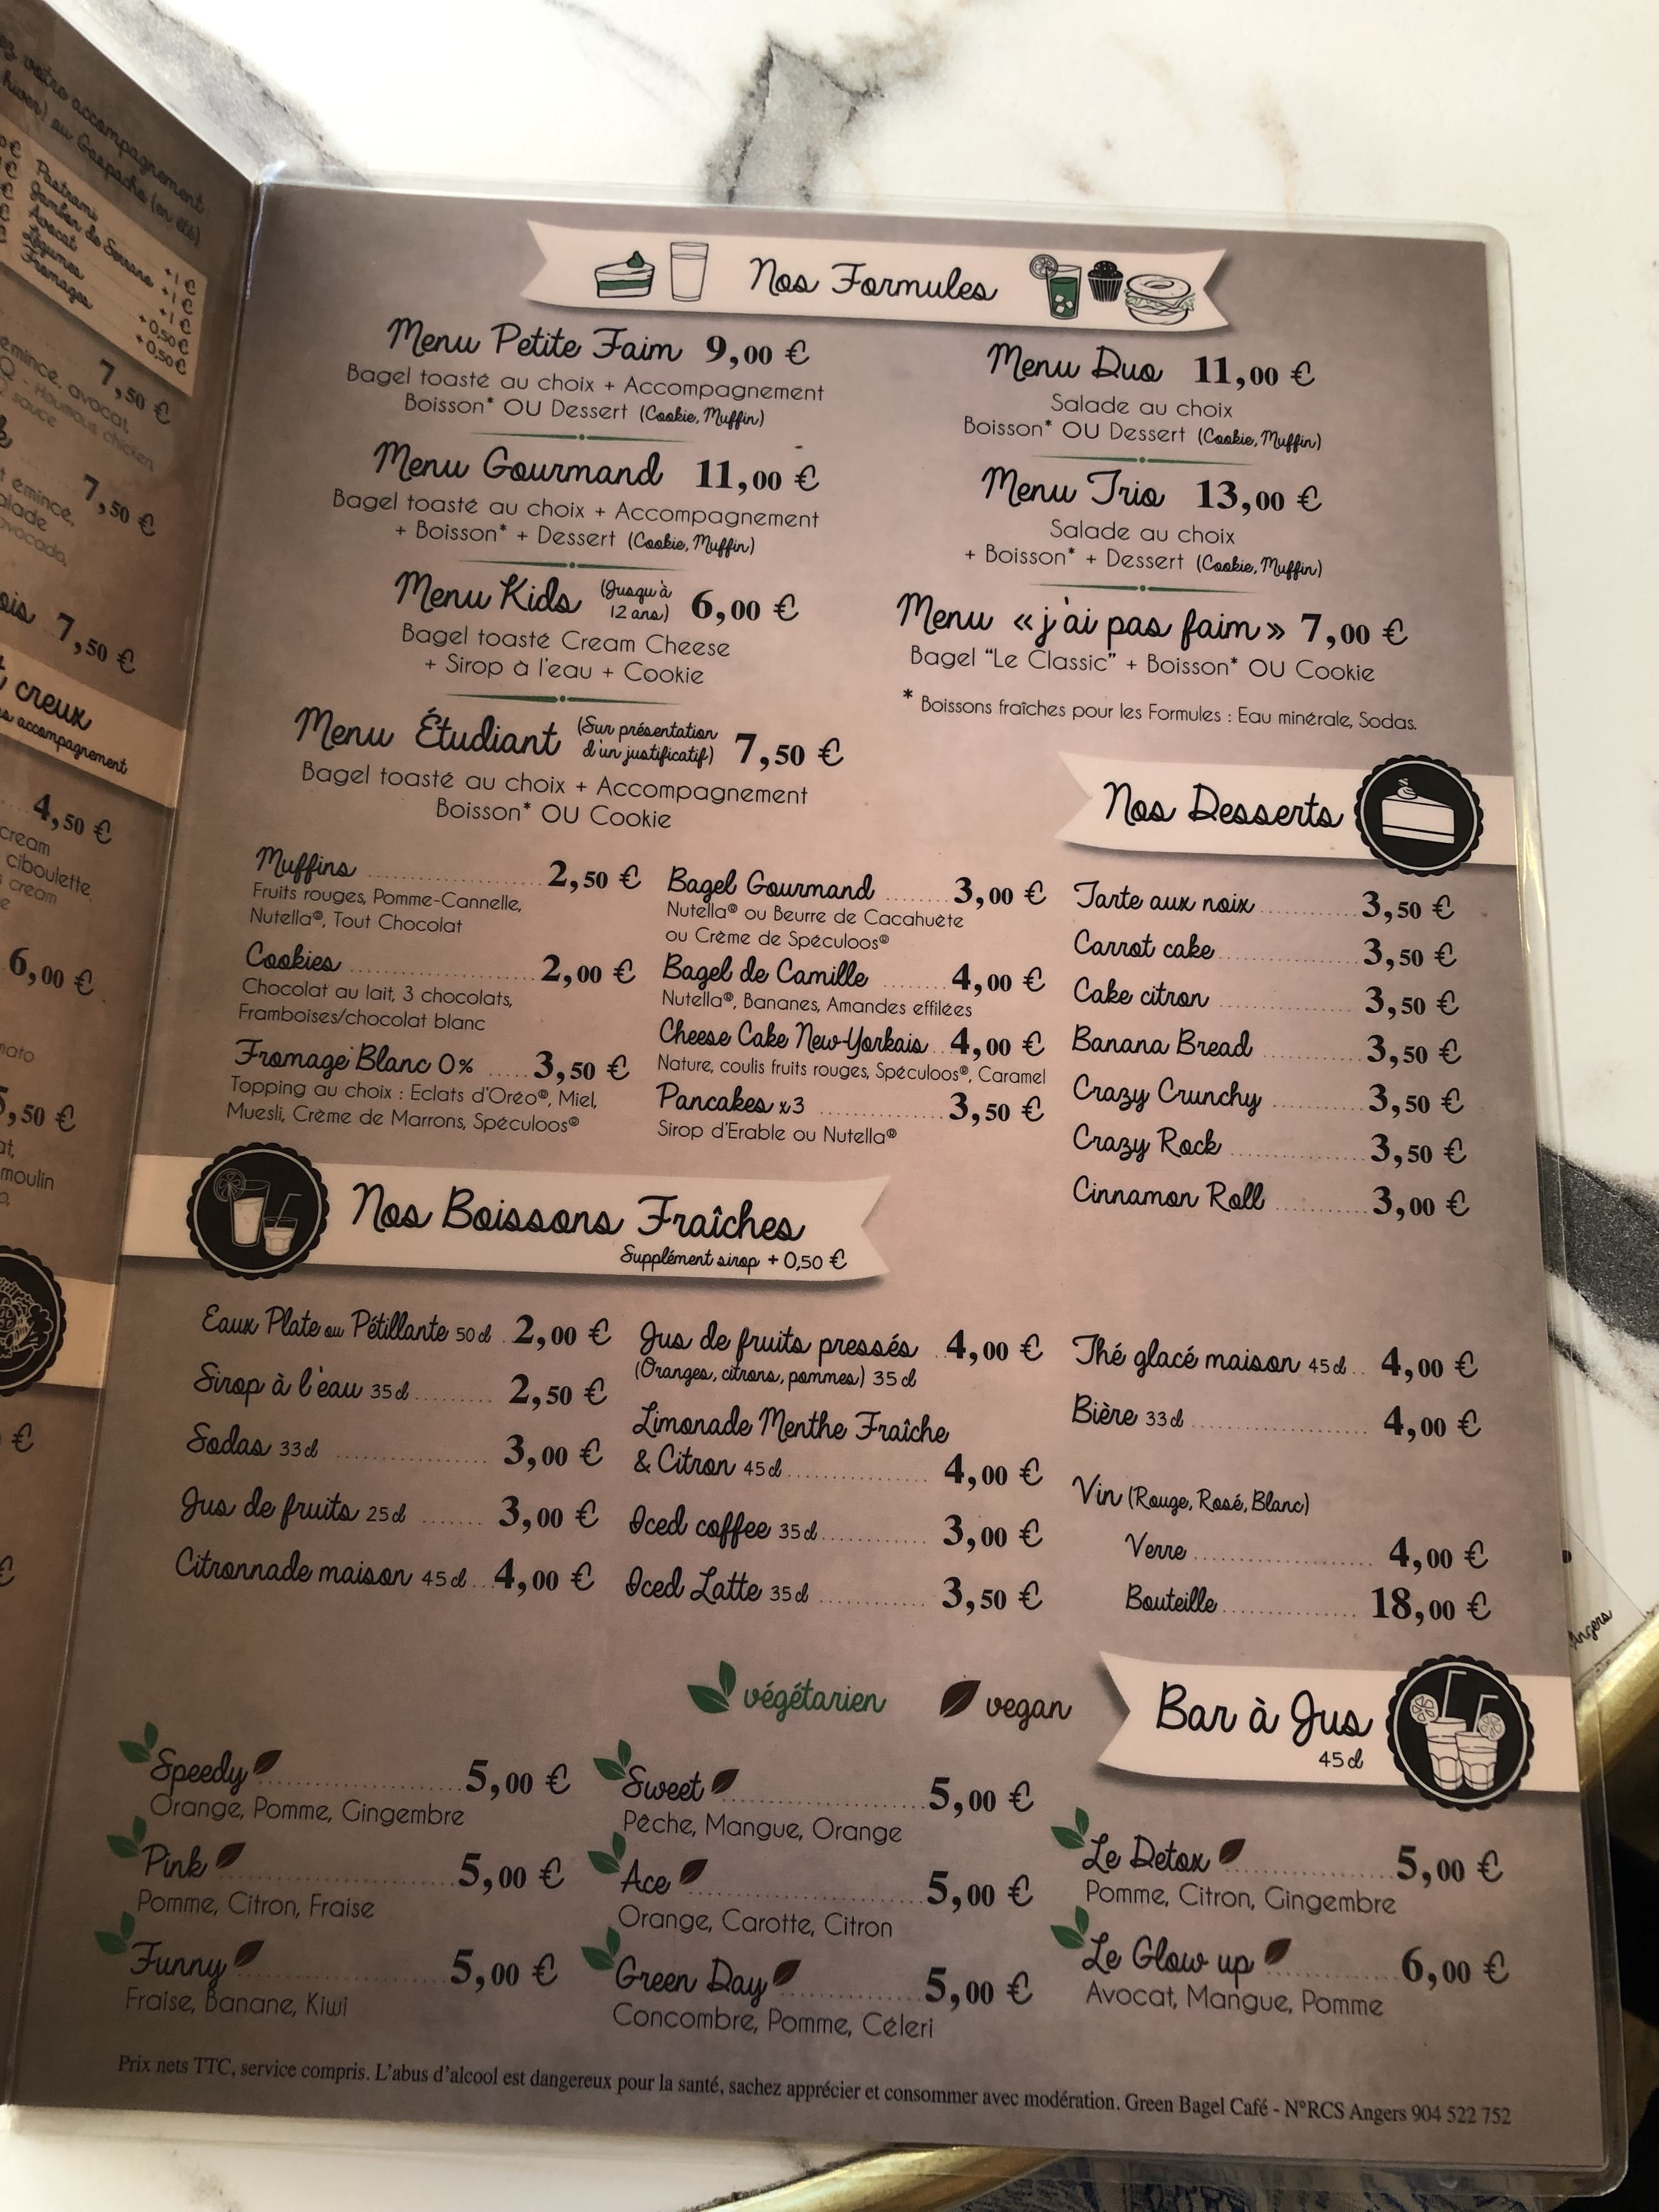 votre accompagnement
hiver) ou Gaspacho (en été)
Pastrami +1 €
Jambon de Serrano +1 €
Avocat +1 €
Légumes +0,50 €
Fromages +0,50 €
7,50 €
émincé, avocat,
Houmous chicken
sauce
7,50 €
émincé,
avocado,
7,50 €
creux
accompagnement
4,50 €
cream
ciboulette,
cream
6,00 €
5,50 €
moulin
€
€
Nos Formules
Menu Petite Faim 9,00 €
Bagel toasté au choix + Accompagnement
Boisson* OU Dessert (Cookie, Muffin)
Menu Gourmand 11,00 €
Bagel toasté au choix + Accompagnement
+ Boisson* + Dessert (Cookie, Muffin)
Menu Kids (Jusqu'à 12 ans) 6,00 €
Bagel toasté Cream Cheese
+ Sirop à l'eau + Cookie
Menu Étudiant (Sur présentation d'un justificatif) 7,50 €
Bagel toasté au choix + Accompagnement
Boisson* OU Cookie
Menu Duo 11,00 €
Salade au choix
Boisson* OU Dessert (Cookie, Muffin)
Menu Trio 13,00 €
Salade au choix
+ Boisson* + Dessert (Cookie, Muffin)
Menu « j'ai pas faim » 7,00 €
Bagel "Le Classic" + Boisson* OU Cookie
* Boissons fraîches pour les Formules : Eau minérale, Sodas.
Nos Desserts
Muffins 2,50 €
Fruits rouges, Pomme-Cannelle,
Nutella®, Tout Chocolat
Cookies 2,00 €
Chocolat au lait, 3 chocolats,
Framboises/chocolat blanc
Fromage Blanc 0% 3,50 €
Topping au choix : Eclats d'Oréo®, Miel,
Muesli, Crème de Marrons, Spéculoos®
Bagel Gourmand 3,00 €
Nutella® ou Beurre de Cacahuète
ou Crème de Spéculoos®
Bagel de Camille 4,00 €
Nutella®, Bananes, Amandes effilées
Cheese Cake New-Yorkais 4,00 €
Nature, coulis fruits rouges, Spéculoos®, Caramel
Pancakes x3 3,50 €
Sirop d'Erable ou Nutella®
Tarte aux noix 3,50 €
Carrot cake 3,50 €
Cake citron 3,50 €
Banana Bread 3,50 €
Crazy Crunchy 3,50 €
Crazy Rock 3,50 €
Cinnamon Roll 3,00 €
Nos Boissons Fraîches
Supplément sirop + 0,50 €
Eaux Plate ou Pétillante 50cl 2,00 €
Sirop à l'eau 35cl 2,50 €
Sodas 33cl 3,00 €
Jus de fruits 25cl 3,00 €
Citronnade maison 45cl 4,00 €
Jus de fruits pressés 4,00 €
(Oranges, citrons, pommes) 35cl
Limonade Menthe Fraîche
& Citron 45cl 4,00 €
Iced coffee 35cl 3,00 €
Iced Latte 35cl 3,50 €
Thé glacé maison 45cl 4,00 €
Bière 33cl 4,00 €
Vin (Rouge, Rosé, Blanc)
Verre 4,00 €
Bouteille 18,00 €
végétarien
vegan
Bar à Jus
45cl
Speedy 5,00 €
Orange, Pomme, Gingembre
Pink 5,00 €
Pomme, Citron, Fraise
Funny 5,00 €
Fraise, Banane, Kiwi
Sweet 5,00 €
Pêche, Mangue, Orange
Ace 5,00 €
Orange, Carotte, Citron
Green Day 5,00 €
Concombre, Pomme, Céleri
Le Detox 5,00 €
Pomme, Citron, Gingembre
Le Glow up 6,00 €
Avocat, Mangue, Pomme
Prix nets TTC, service compris. L'abus d'alcool est dangereux pour la santé, sachez apprécier et consommer avec modération. Green Bagel Café - N°RCS Angers 904 522 752
Angers